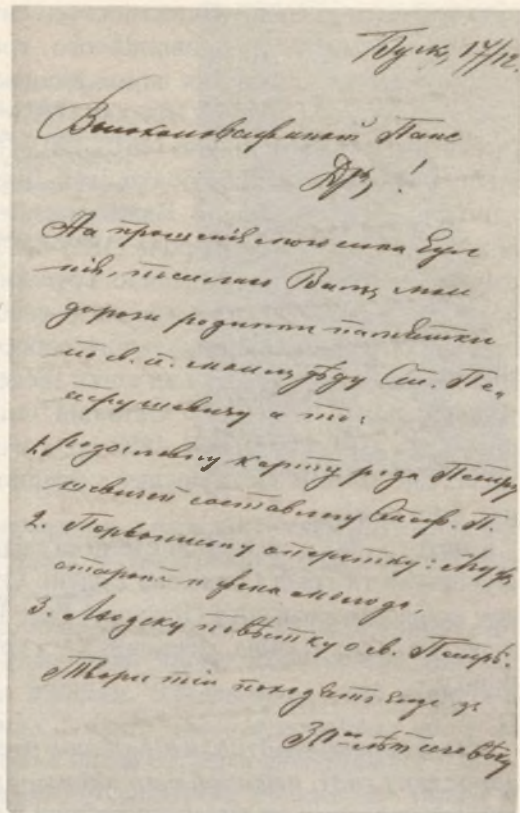 Буск, 17/12.
Высокоповажаный Пане
Дръ!
На прошеніе мого сына Евге
нія, посилаю Вамъ мои
дороги родинни памятки
по с. п. моимъ дѣду Ст. Пе-
трушевичу а то:
1. родословну карту рода Петру
шевичей составлену Стеф. П.
2. Первописну оперетку: Мужъ
старый жена молода.
3. Людску повѣстку о св. Петрѣ.
Твори тіи походятъ еще зъ
30-ыхъ лѣтъ сего вѣку